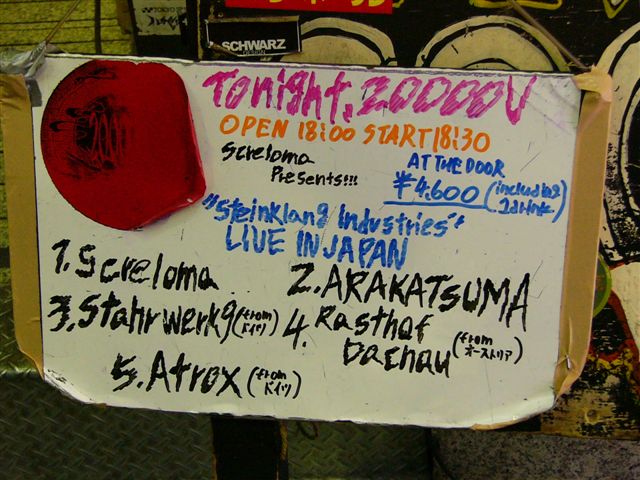 SCHWARZ
DESIGN
Tonight, 20000V
OPEN 18:00 START 18:30
Screloma
Presents!!!
AT THE DOOR
¥4.600 (including
1drink)
"Steinklang Industries"
LIVE IN JAPAN
1. Screloma
2. ARAKATSUMA
3. Stahrwerk9 (from ドイツ)
4. Rasthof
Dachau (from オーストリア)
5. Atrox (from ドイツ)